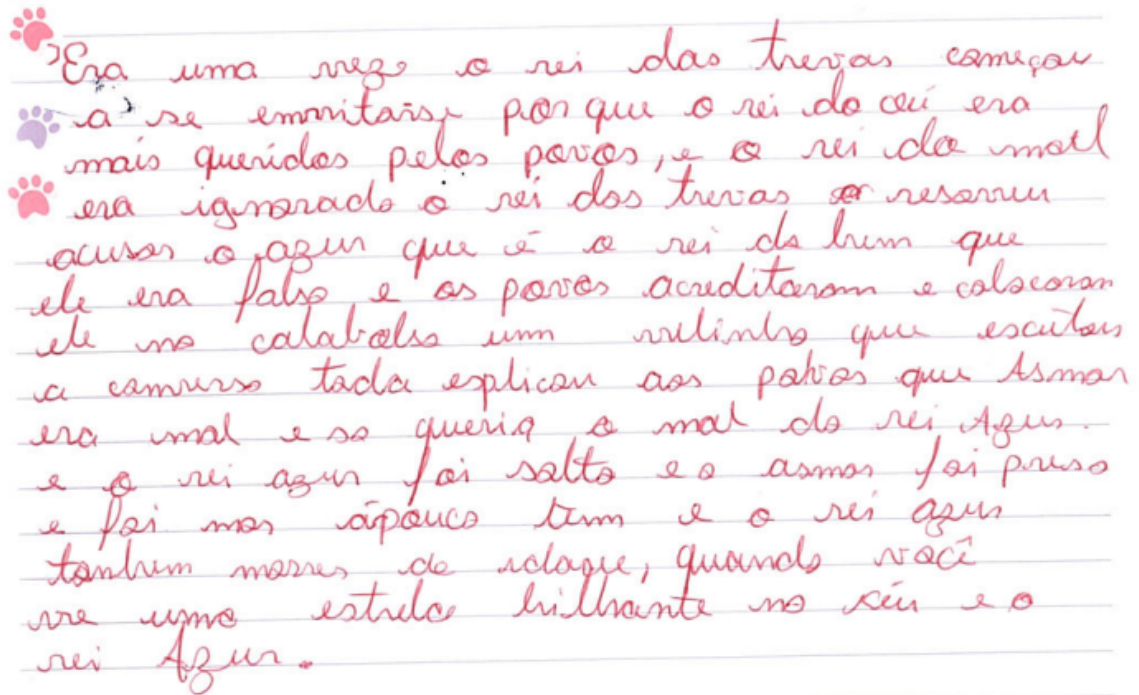 Era uma vez o rei das trevas começou
a se emvitarse por que o rei do ceú era
mais queridos pelos povos, e o rei do matl
era ignorado o rei dos trevas resorveu
acusar o azur que é o rei do bem que
ele era falso e os povos acreditaram e colocaram
ele no calabolso um velinho que escutou
a comverso toda esplicou aos povos que Asmar
era mal e so queria o mal do rei Azur.
e o rei azur foi solto e o asmar foi preso
e foi mor apouco tem e o rei azur
tanbem morreu de idade, quando você
vre uma estrela brilhante no séu e o
rei Azur.